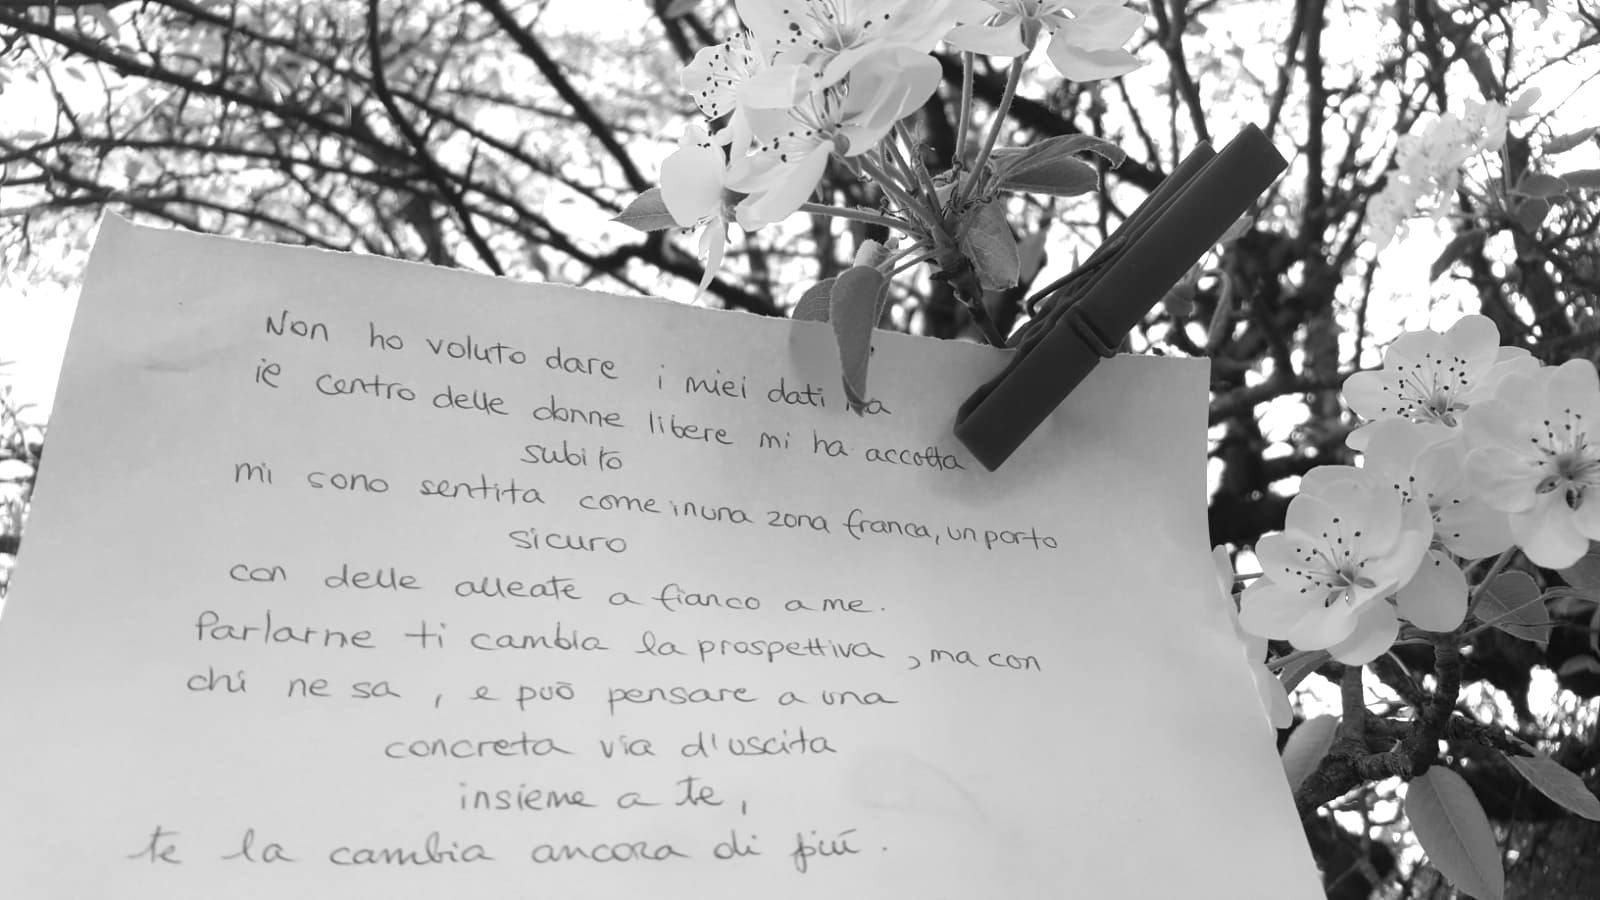 Non ho voluto dare i miei dati ma
il centro delle donne libere mi ha accolta
subito
mi sono sentita come in una zona franca, un porto
sicuro
con delle alleate a fianco a me.
Parlarne ti cambia la prospettiva, ma con
chi ne sa, e può pensare a una
concreta via d'uscita
insieme a te,
te la cambia ancora di più.